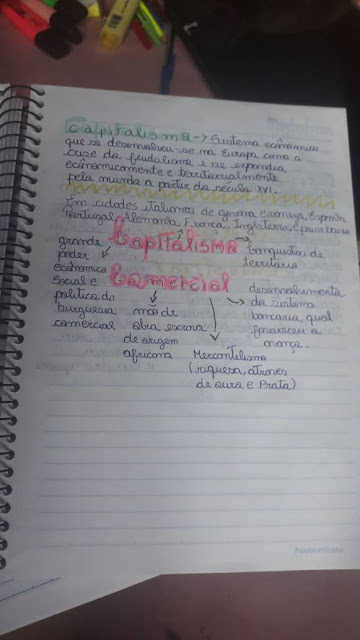 Capitalismo -> Sistema econômico
que se desenvolveu-se na Europa com a
crise do feudalismo e se expandiu
econômicamente e territorialmente
pela mundo a partir do século XVI.
Em cidades italianas de genova e veneza, Espanha
Portugal, Alemanha, França, Inglaterra, e países baixos
Capitalismo
Comercial
grande
poder
econômico
social e
politico da
burguesia
comercial
mão de
obra escrava
de origem
africana
Mercantilismo
(riqueza, atraves
de ouro e Prata)
desenvolvimento
do sistema
bancario qual
favoreceu a
conquistas de
território
PanAmericana